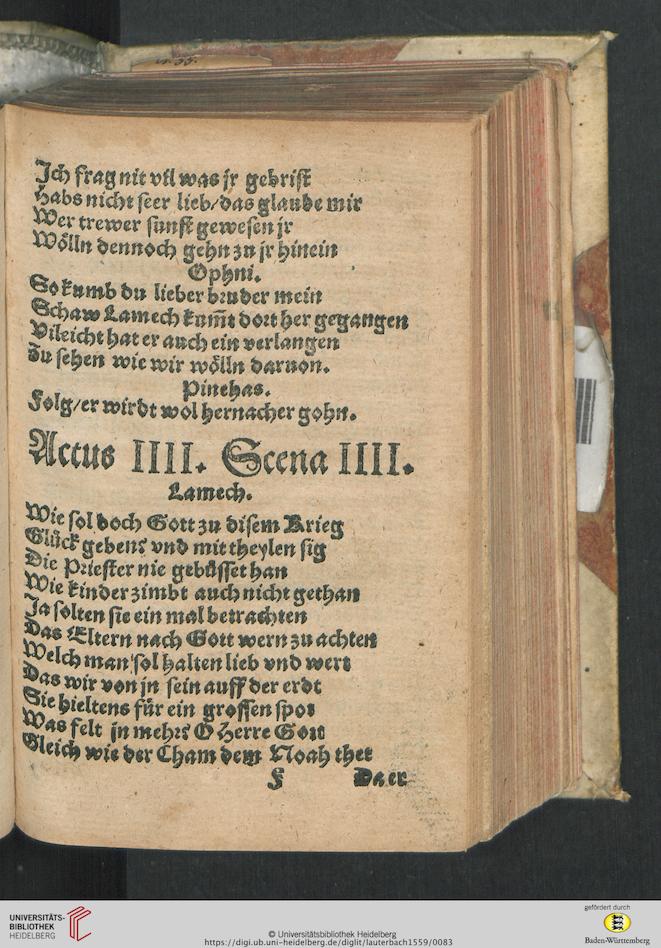 Ich frag nit vil was jr gebrist
Habs nicht seer lieb/das glaube mir
Wer trewer sunst gewesen jr
Wölln dennoch gehn zu jr hinein
Ophni.
So kumb du lieber bruder mein
Schaw Lamech kum̃t dort her gegangen
Vileicht hat er auch ein verlangen
Zu sehen wie wir wölln daruon.
Pinehas.
Folg/er wirdt wol hernacher gohn.
Actus IIII. Scena IIII.
Lamech.
Wie sol doch Gott zu disem Krieg
Glück geben? vnd mit theylen sig
Die Priester nie gebüsset han
Wie kinder zimbt auch nicht gethan
Ja solten sie ein mal betrachten
Das Eltern nach Gott wern zu achten
Welch man sol halten lieb vnd wert
Das wir von jn sein auff der erdt
Sie hieltens für ein grossen spot
Was felt jn mehr? O Herre Gott
Gleich wie der Cham dem Noah thet
F Da er
UNIVERSITÄTS-
BIBLIOTHEK
HEIDELBERG
© Universitätsbibliothek Heidelberg
https://digi.ub.uni-heidelberg.de/diglit/lauterbach1559/0083
gefördert durch
Baden-Württemberg